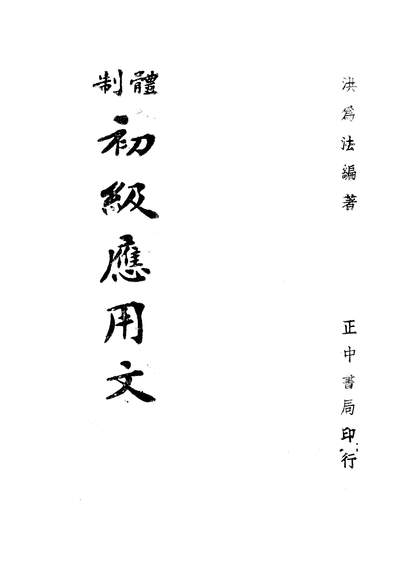 洪爲法編著
正中書局印行
體制
初級應用文